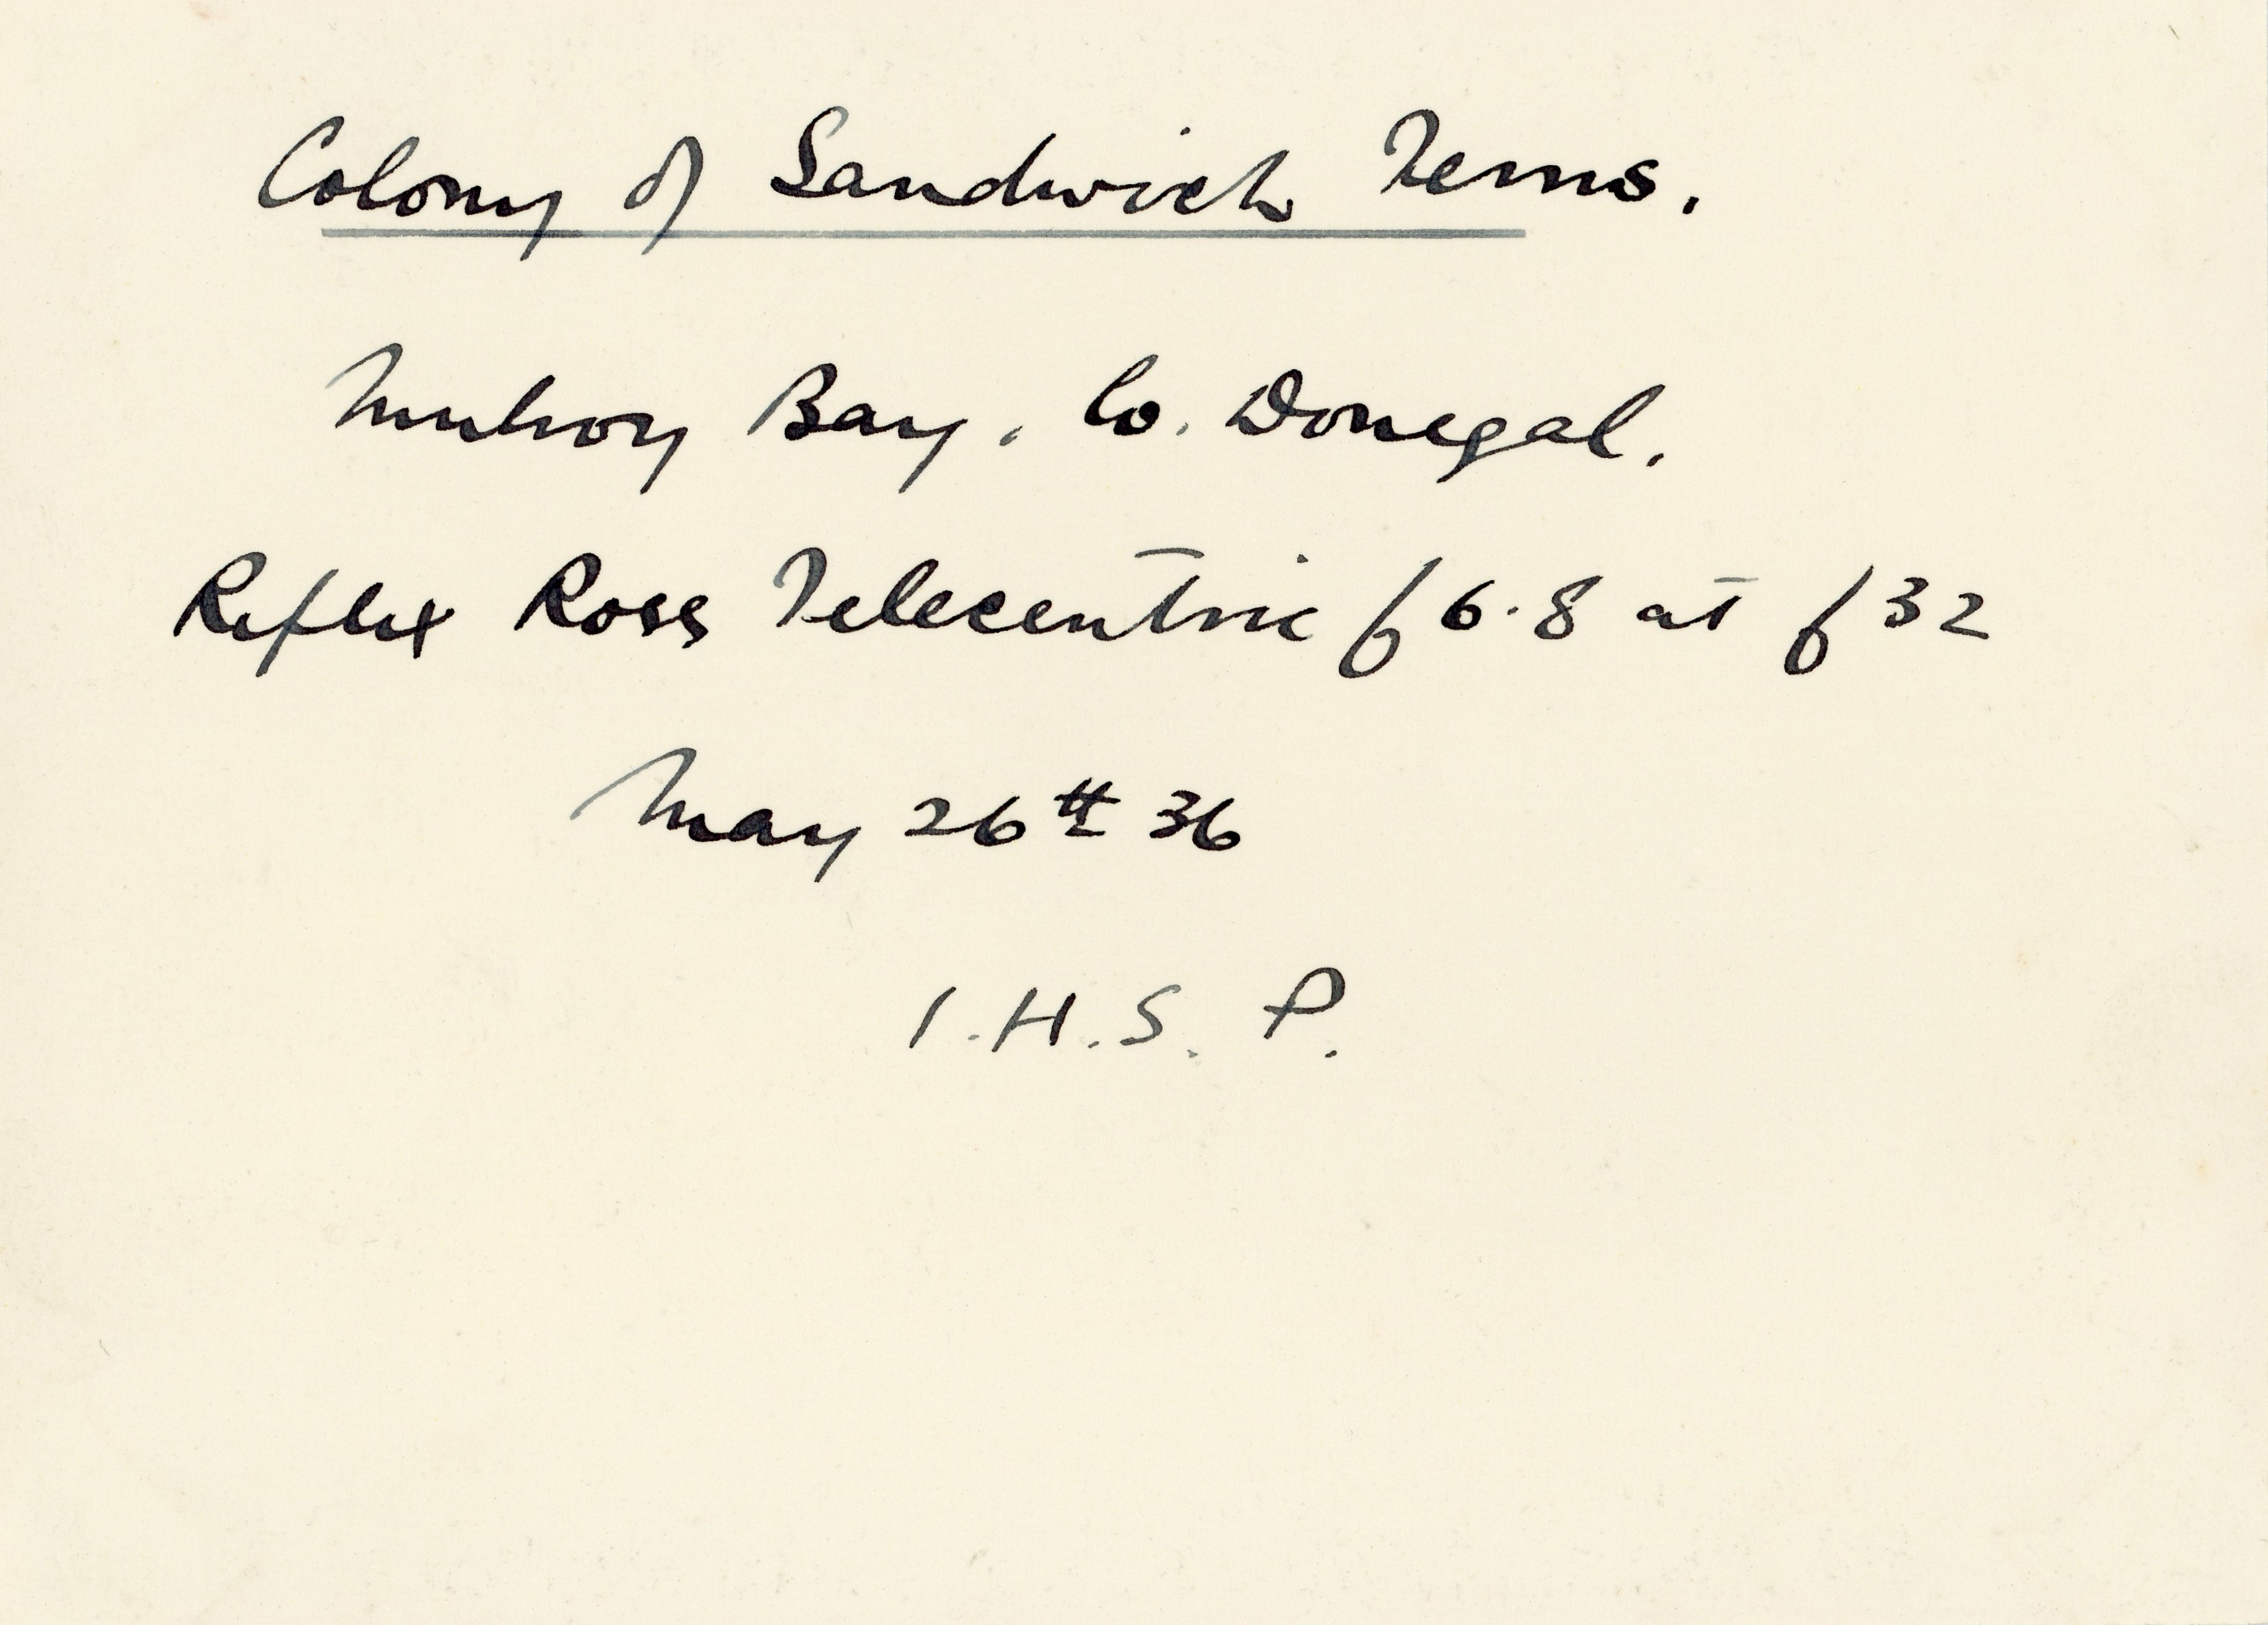 Colony of Sandwich Terns.
Mulroy Bay. Co. Donegal.
Reflex Ross Telecentric f6.8 at f32
May 26th 36
I.H.S. P.